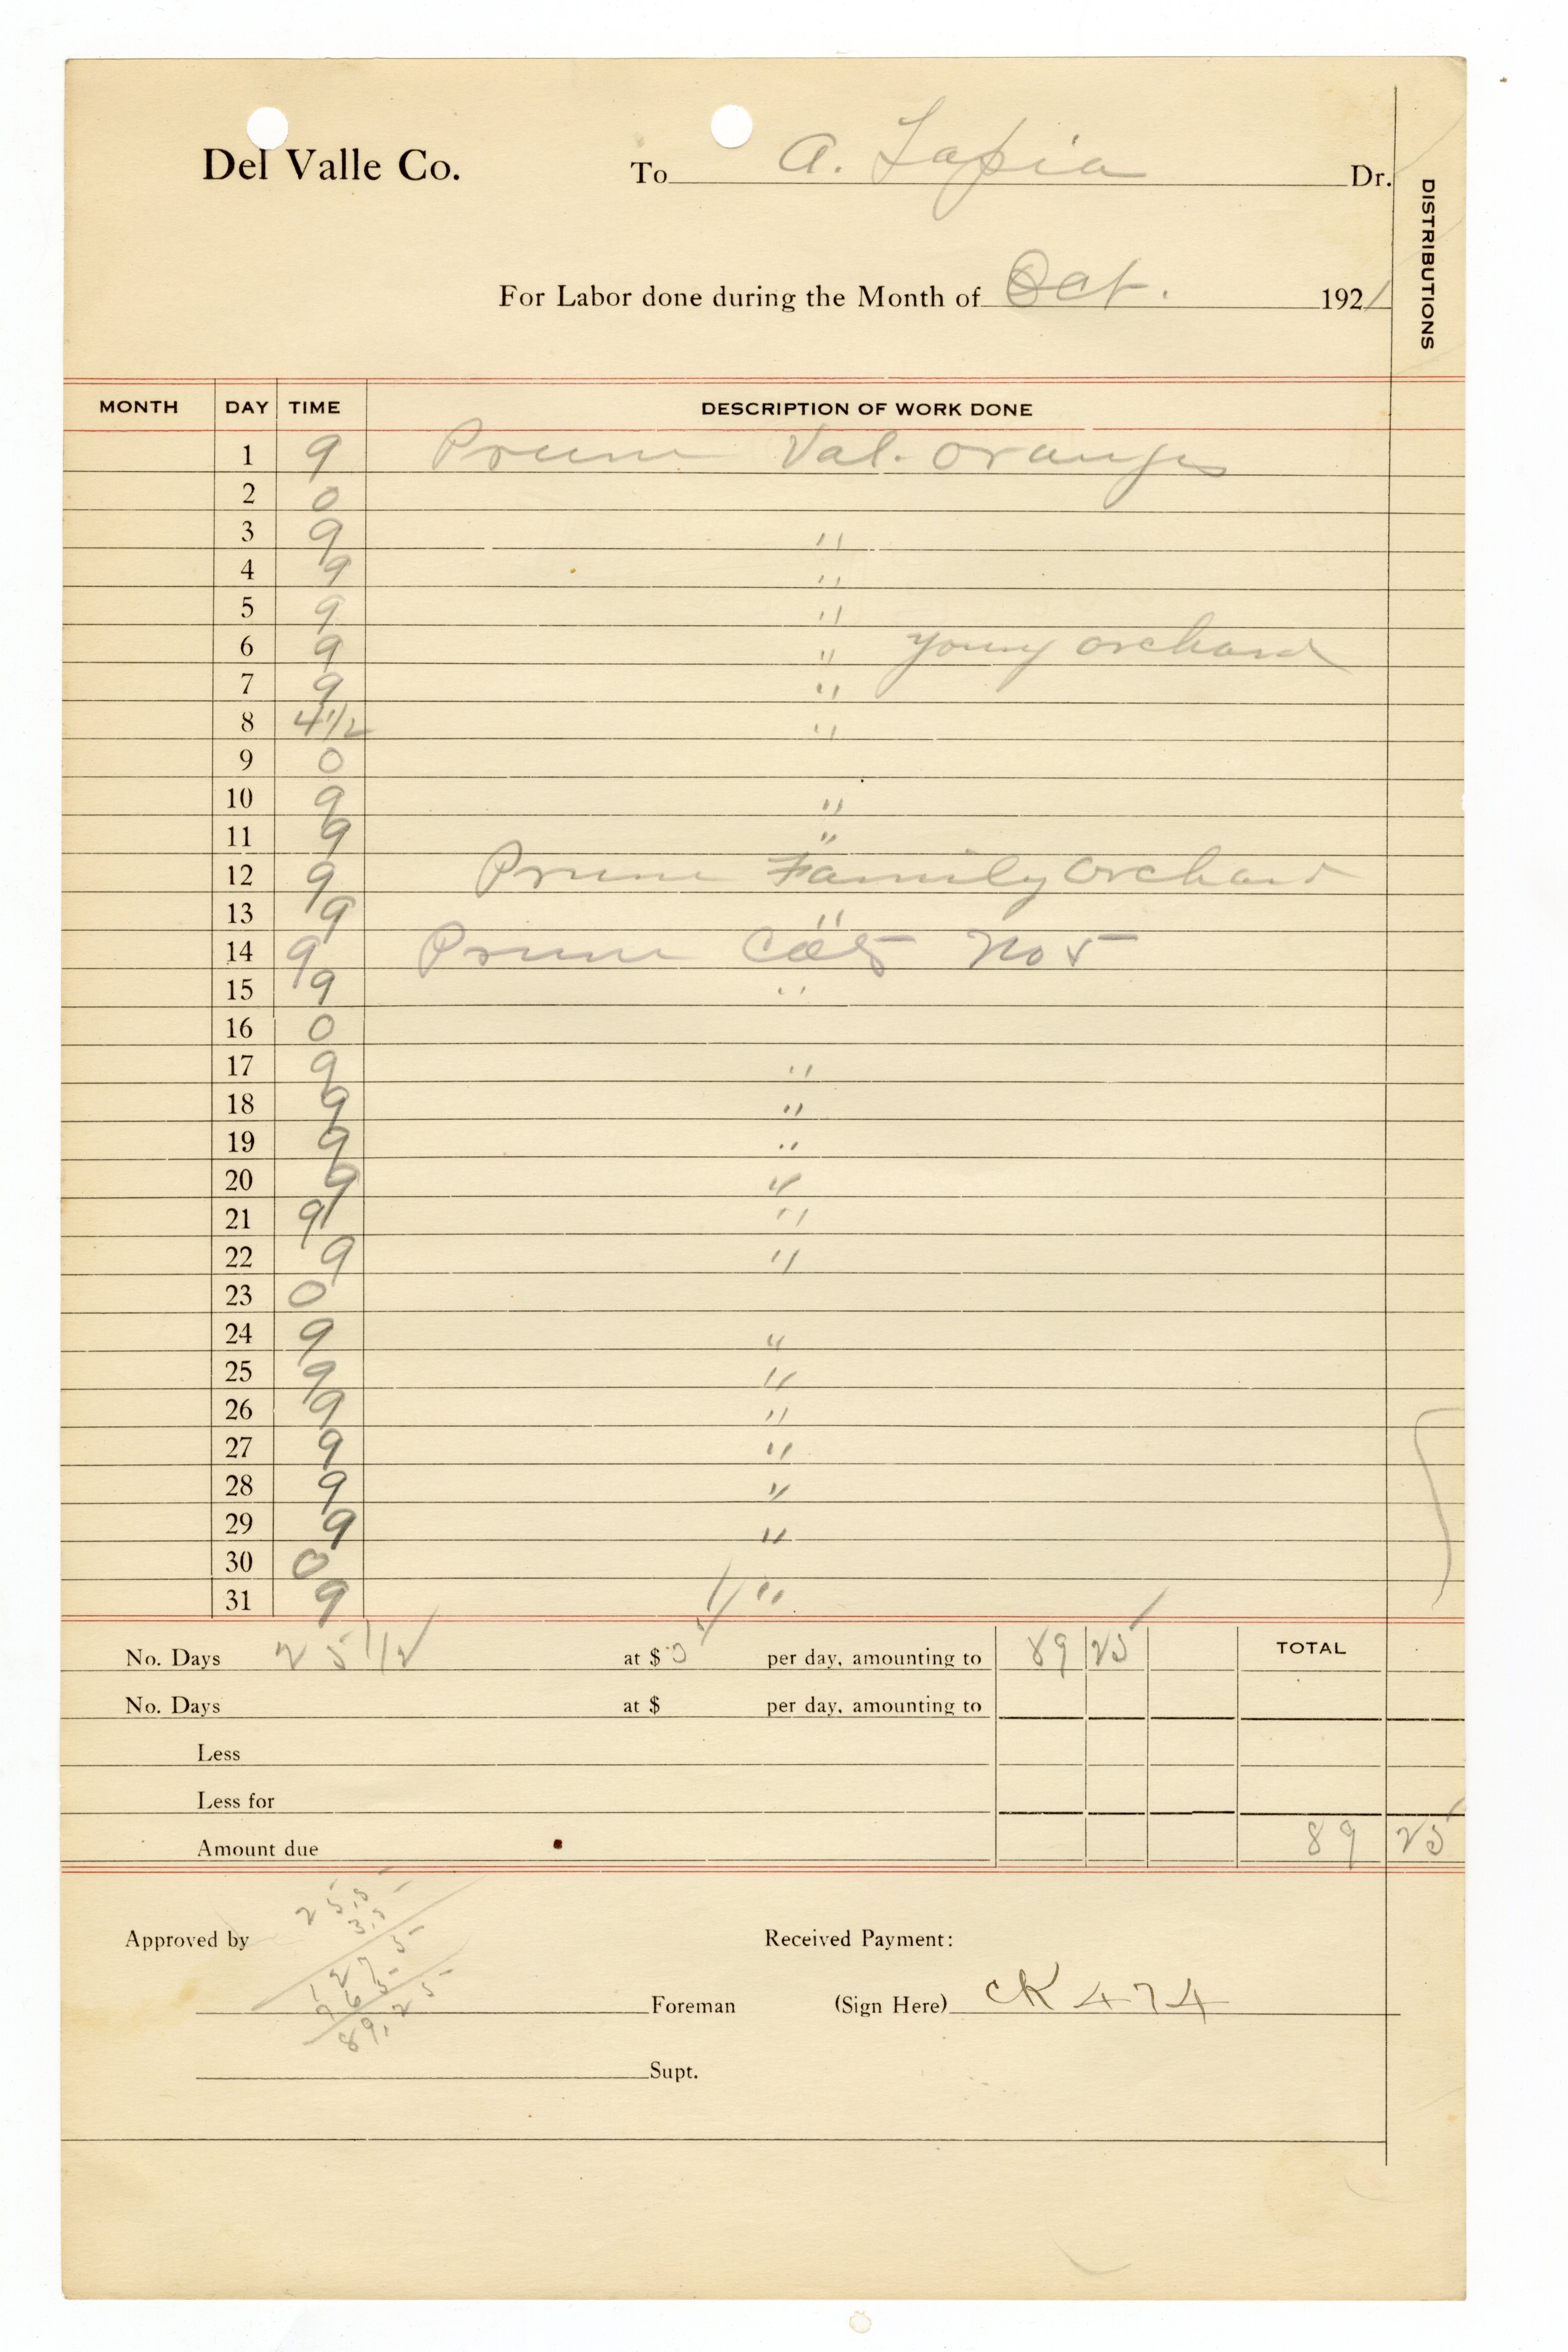 Del Valle Co. To A. Tapia Dr.
DISTRIBUTIONS
For Labor done during the Month of Oct. 1921
MONTH DAY TIME DESCRIPTION OF WORK DONE
1 9 Prune Val. oranges
2 0
3 9 "
4 9 "
5 9 "
6 9 " young orchard
7 9 "
8 4 1/2 "
9 0
10 9 "
11 9 "
12 9 Prune Family Orchard
13 9 "
14 9 Prune No 5
15 9 "
16 0
17 9 "
18 9 "
19 9 "
20 9 "
21 9 "
22 9 "
23 0
24 9 "
25 9 "
26 9 "
27 9 "
28 9 "
29 9 "
30 0
31 9 "
No. Days 25 1/2 at $ 3 per day, amounting to 89 25 TOTAL
No. Days at $ per day, amounting to
Less
Less for
Amount due 89 25
25.5
3.5
Approved by Received Payment:
127 5
765
89.25
Foreman (Sign Here) CK 474
Supt.